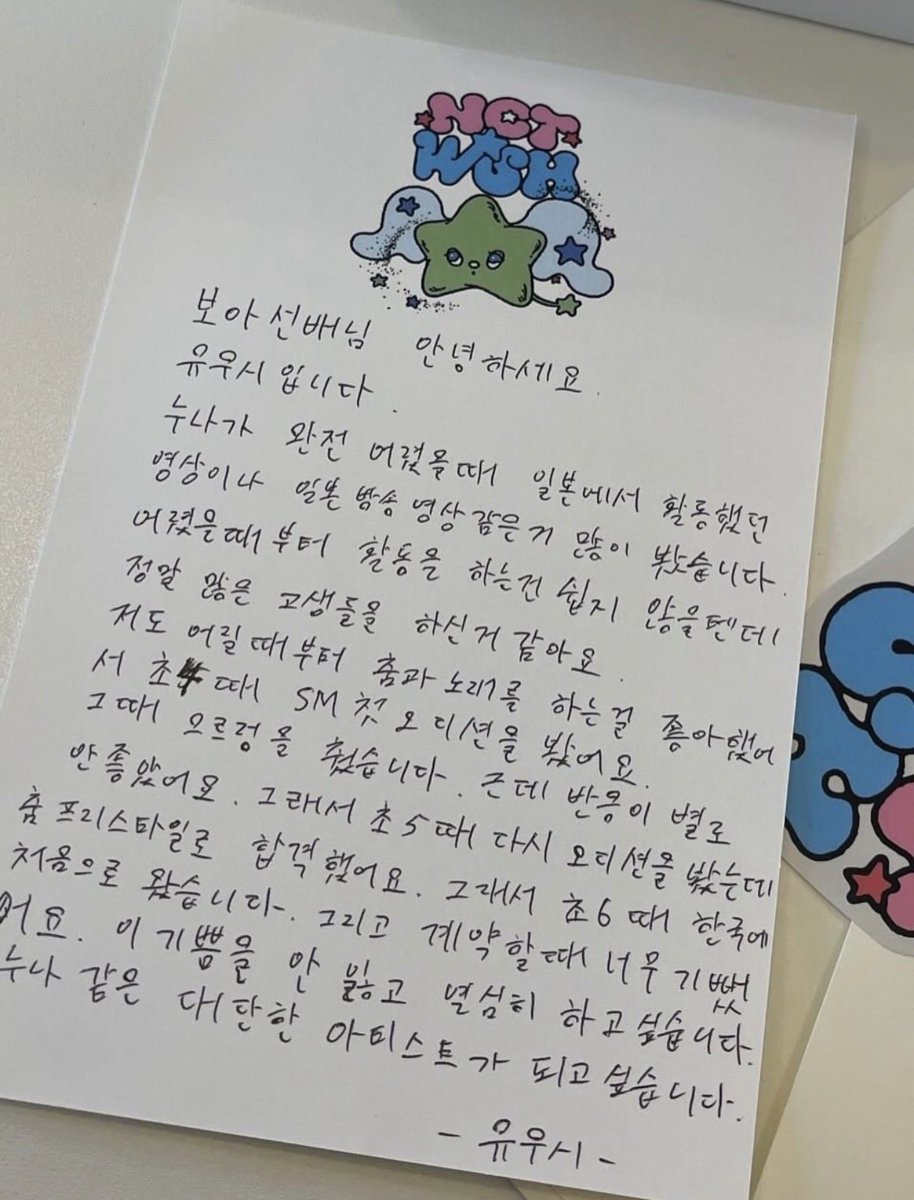 NCT
WISH
보아선배님 안녕하세요.
유우시입니다.
누나가 완전 어렸을때 일본에서 활동했던
영상이나 일본 방송 영상 같은거 많이 봤습니다.
어렸을때부터 활동을 하는건 쉽지 않을텐데
정말 많은 고생들을 하신거 같아요.
저도 어릴때부터 춤과 노래를 하는걸 좋아했어
서 초4 때 SM 첫 오디션을 봤어요.
그때 으르렁을 췄습니다. 근데 반응이 별로
안좋았어요. 그래서 초5때 다시 오디션을 봤는데
춤프리스타일로 합격했어요. 그래서 초6때 한국에
처음으로 왔습니다. 그리고 계약할때 너무 기뻤
어요. 이 기쁨을 안 잃고 열심히 하고싶습니다.
누나 같은 대단한 아티스트가 되고싶습니다.
- 유우시 -